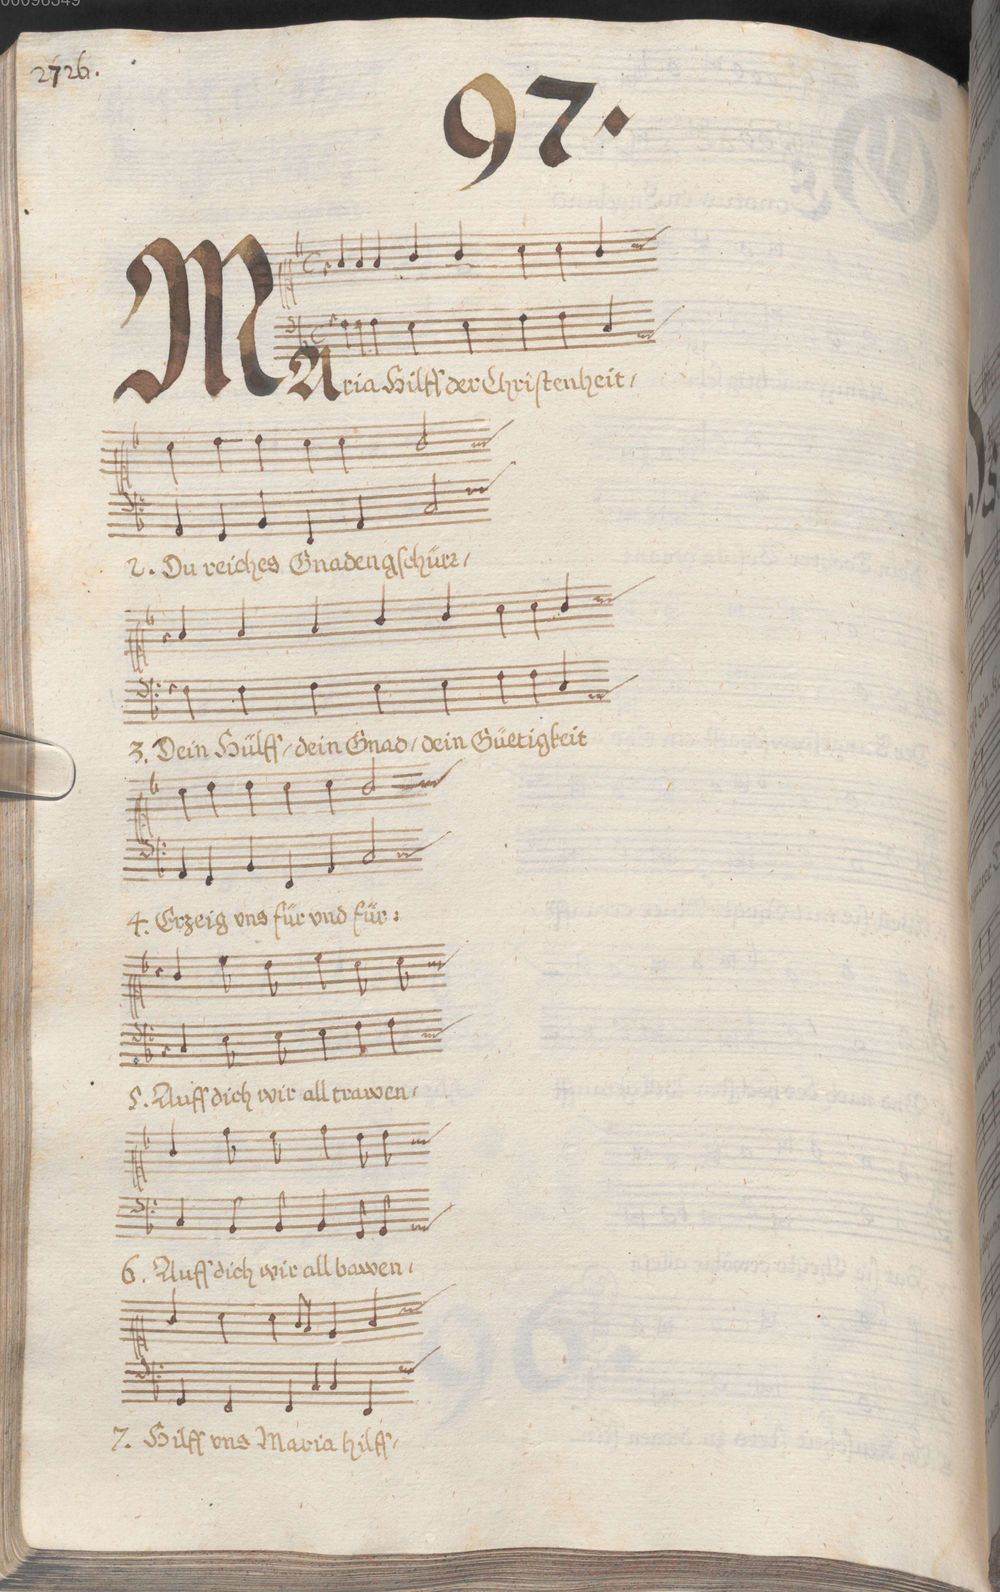 2726.
97.
MAria Hilff der Christenheit /
2. Du reiches Gnadengschürr /
3. Dein Hülff / dein Gnad / dein Güetigkeit
4. Erzeig vns für vnd für :
5. Auff dich wir all trawen /
6. Auff dich wir all bawen /
7. Hilff vns Maria hilff /